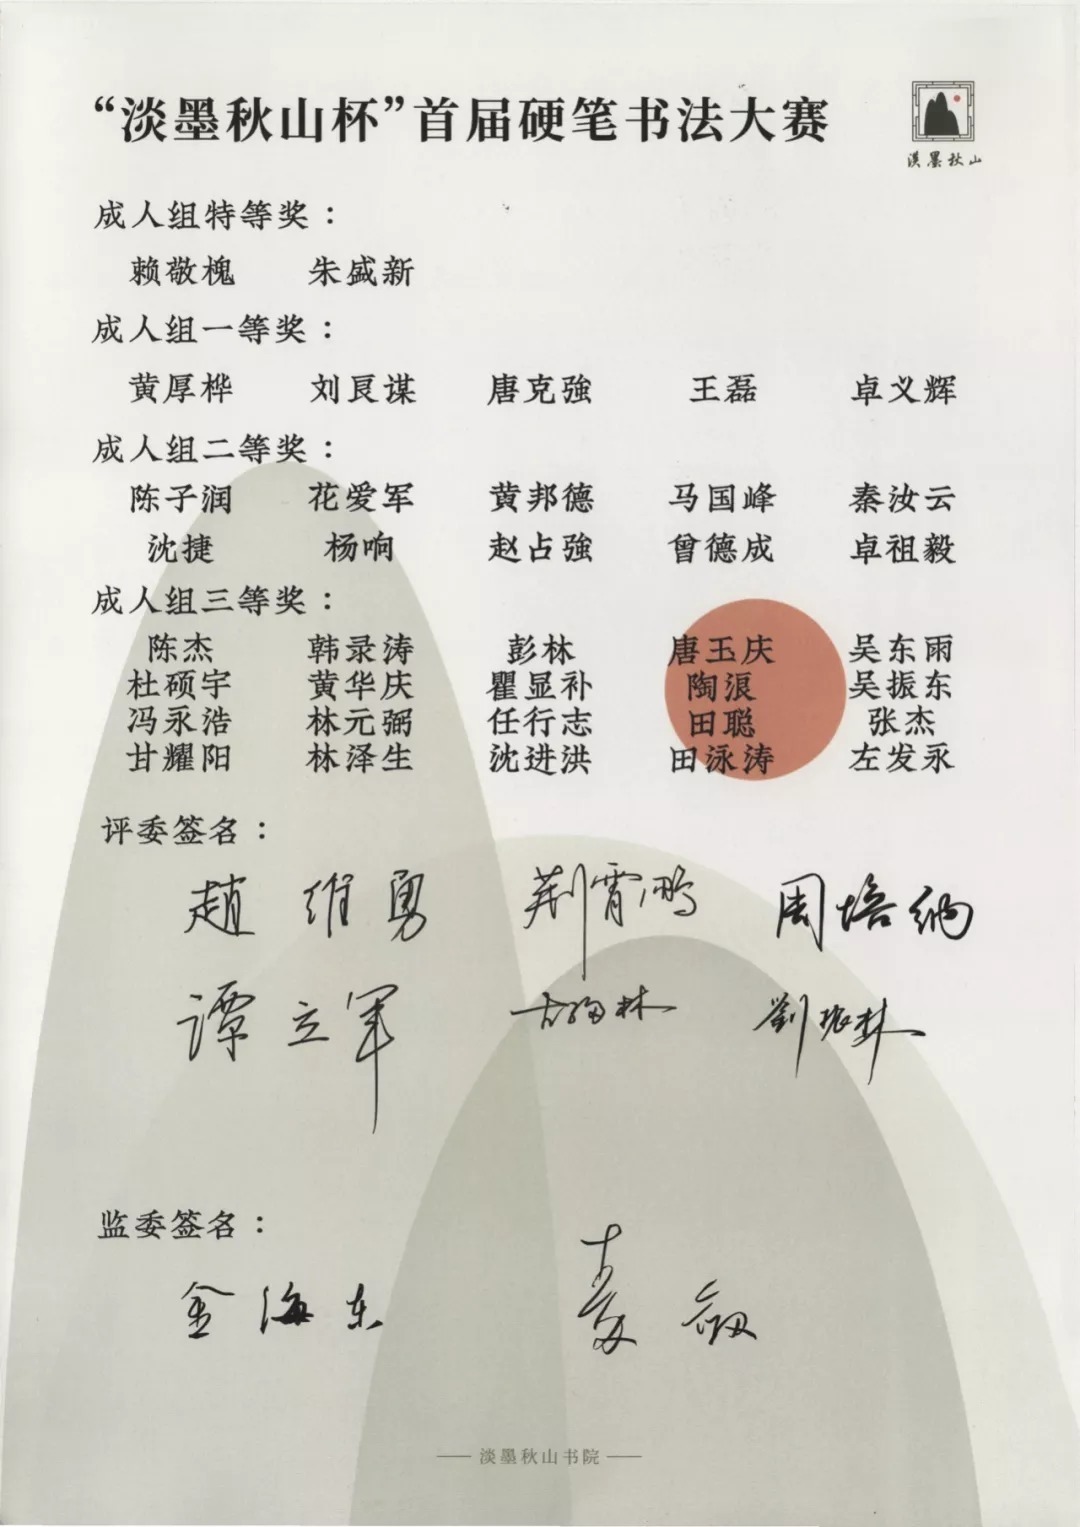 “淡墨秋山杯”首届硬笔书法大赛
淡墨秋山
成人组特等奖：
赖敬槐 朱盛新
成人组一等奖：
黄厚桦 刘艮谋 唐克強 王磊 卓义辉
成人组二等奖：
陈子润 花爱军 黄邦德 马国峰 秦汝云
沈捷 杨响 赵占強 曾德成 卓祖毅
成人组三等奖：
陈杰 韩录涛 彭林 唐玉庆 吴东雨
杜硕宇 黄华庆 瞿显补 陶浪 吴振东
冯永浩 林元弼 任行志 田聪 张杰
甘耀阳 林泽生 沈进洪 田泳涛 左发永
评委签名：
趙维勇 荆霄鹏 周培纳
谭立军 林 劉林
监委签名：
金海东
淡墨秋山书院